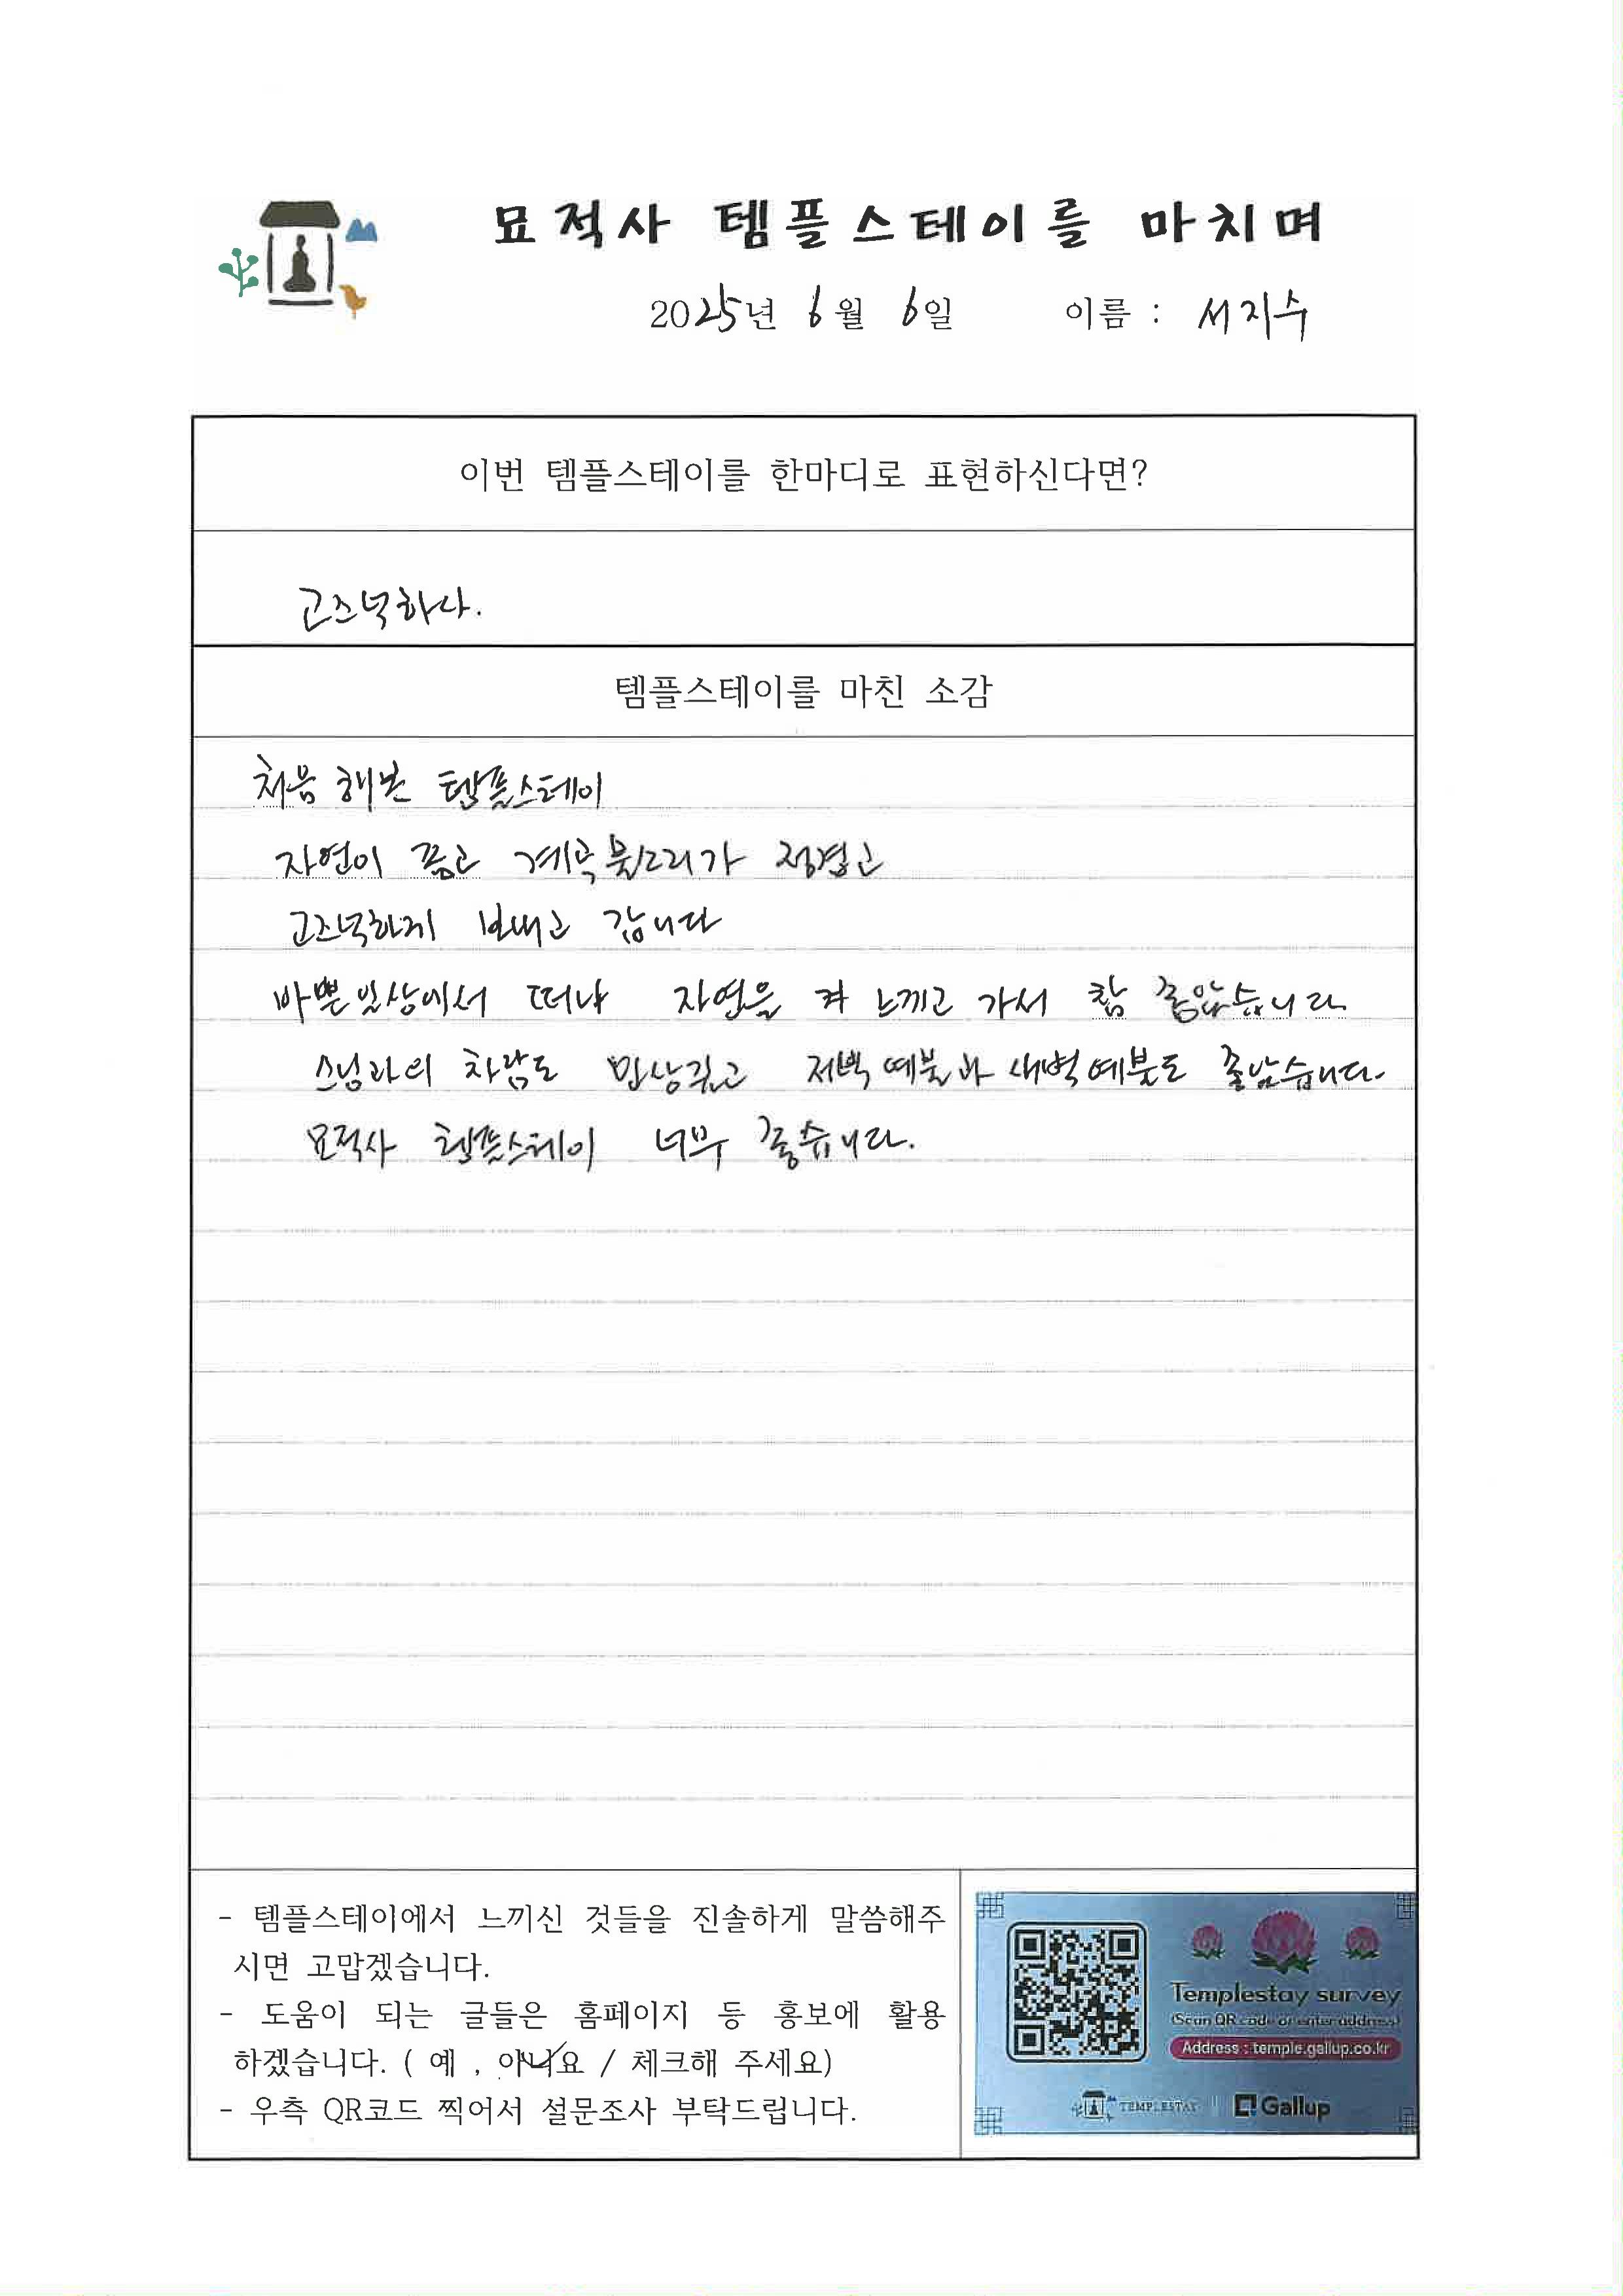 묘적사 템플스테이를 마치며
2025년 6월 6일 이름 : 서지수
이번 템플스테이를 한마디로 표현하신다면?
고즈넉하다.
템플스테이를 마친 소감
처음 해본 템플스테이
자연이 품고 계곡물소리가 정겹고
고즈넉하게 보내고 갑니다
바쁜 일상에서 떠나 자연을 느끼고 가서 참 좋았습니다
스님과의 차담도 인상깊고 저녁예불과 새벽예불도 좋았습니다.
묘적사 템플스테이 너무 좋습니다.
- 템플스테이에서 느끼신 것들을 진솔하게 말씀해주
시면 고맙겠습니다.
- 도움이 되는 글들은 홈페이지 등 홍보에 활용
하겠습니다. ( 예 , 아니요 / 체크해 주세요)
- 우측 QR코드 찍어서 설문조사 부탁드립니다.
Templestay survey
(Scan QR code or enter address)
Address : temple.gallup.co.kr
TEMPLESTAY Gallup